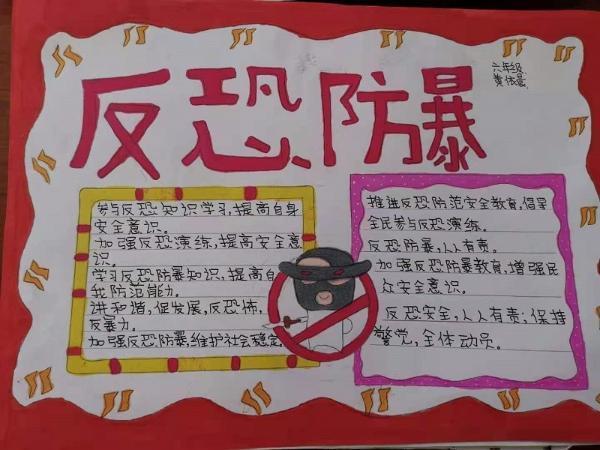 反恐防暴
六年级
参与反恐知识学习,提高自身
安全意识。
加强反恐演练,提高安全意
识。
学习反恐防暴知识,提高自
我防范能力。
讲和谐,促发展,反恐怖,
反暴力。
加强反恐防暴,维护社会稳定
推进反恐防范安全教育,倡导
全民参与反恐演练。
反恐防暴,人人有责。
加强反恐防暴教育,增强民
众安全意识。
反恐安全,人人有责;保持
警觉,全体动员。